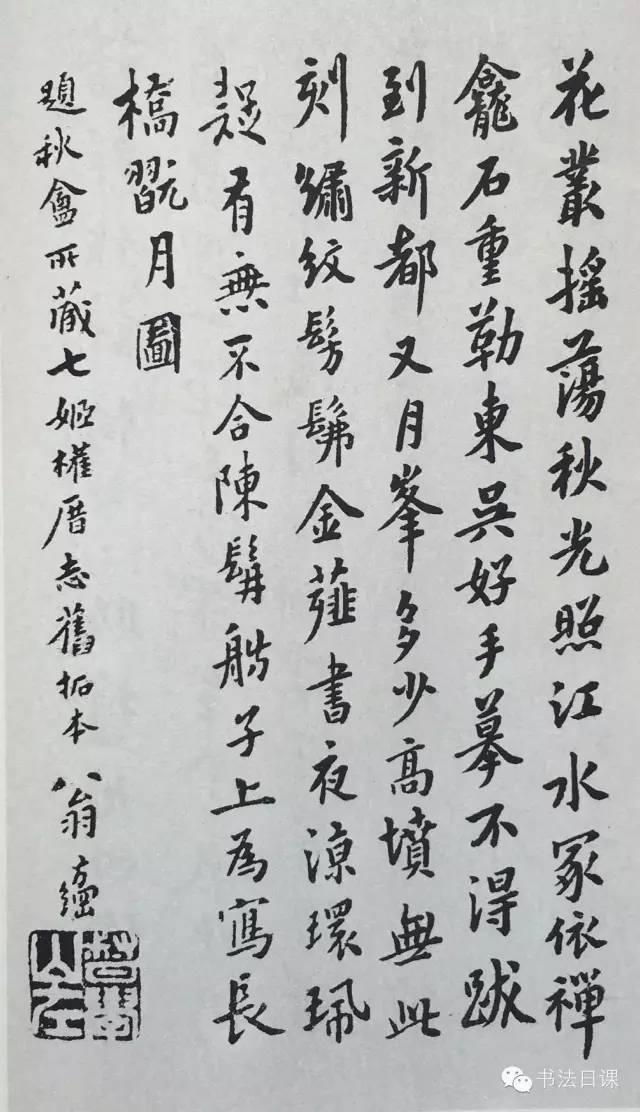 花叢摇蕩秋光照江水冢依禪
龕石重勒東吳好手摹不得跋
到新都又月峯多少高墳無此
刻繡紋髣髴金薤書夜涼環珮
疑有無不合陳髯艄子上為寫長
橋翫月圖
題秋盦所藏七姬權厝志舊拓本 翁方綱
书法日课